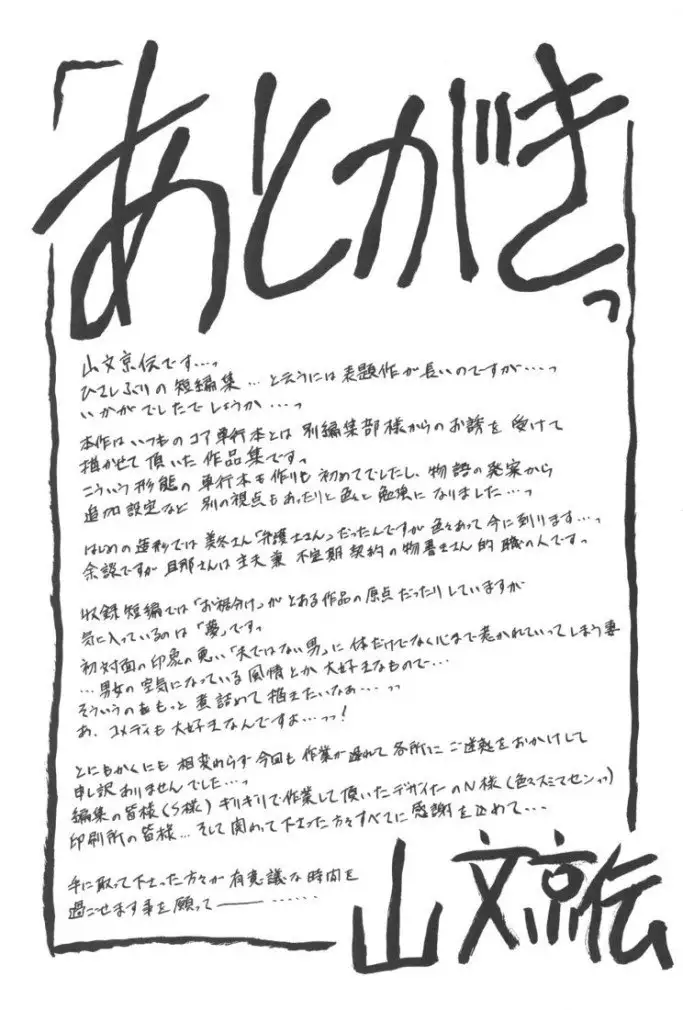 「あとがきっ
山文京伝です…っ
ひさしぶりの短編集…と云うには表題作が長いのですが…っ
いかがでしたでしょうか…っ
本作はいつものコア単行本とは別編集部様からのお誘を受けて
描かせて頂いた作品集ですっ
こういう形態の単行本を作りも初めてでしたし、物語の発案から
追加設定など別の視点もあったりと色々と勉強になりました…っ
はじめの造形では美冬さん「弁護士さん」だったんですが色々あって今に到ります…っ
余談ですが旦那さんは主夫兼不定期契約の物書きさん的職の人ですっ
収録短編では「お裾分け」がとある作品の原点だったりしていますが
気に入っているのは「夢」ですっ
初対面の印象の悪い「夫ではない男」に体だけでなく心まで惹かれていってしまう妻
…男女の空気になっている風情とか大好きなもので…
そういうのをもっと煮詰めて描きたいなぁ…っっ
あ、コメディも大好きなんですよ…っっ!
とにもかくにも相変わらず今回も作業が遅れて各所にご迷惑をおかけして
申し訳ありませんでした…っ
編集の皆様(S様)ギリギリで作業して頂いたデザイナーのN様(色々スミマセンっっ)
印刷所の皆様…そして関わって下さった方々すべてに感謝を込めて…
手に取って下さった方々が有意義な時間を
過ごせます事を願って――……
山文京伝